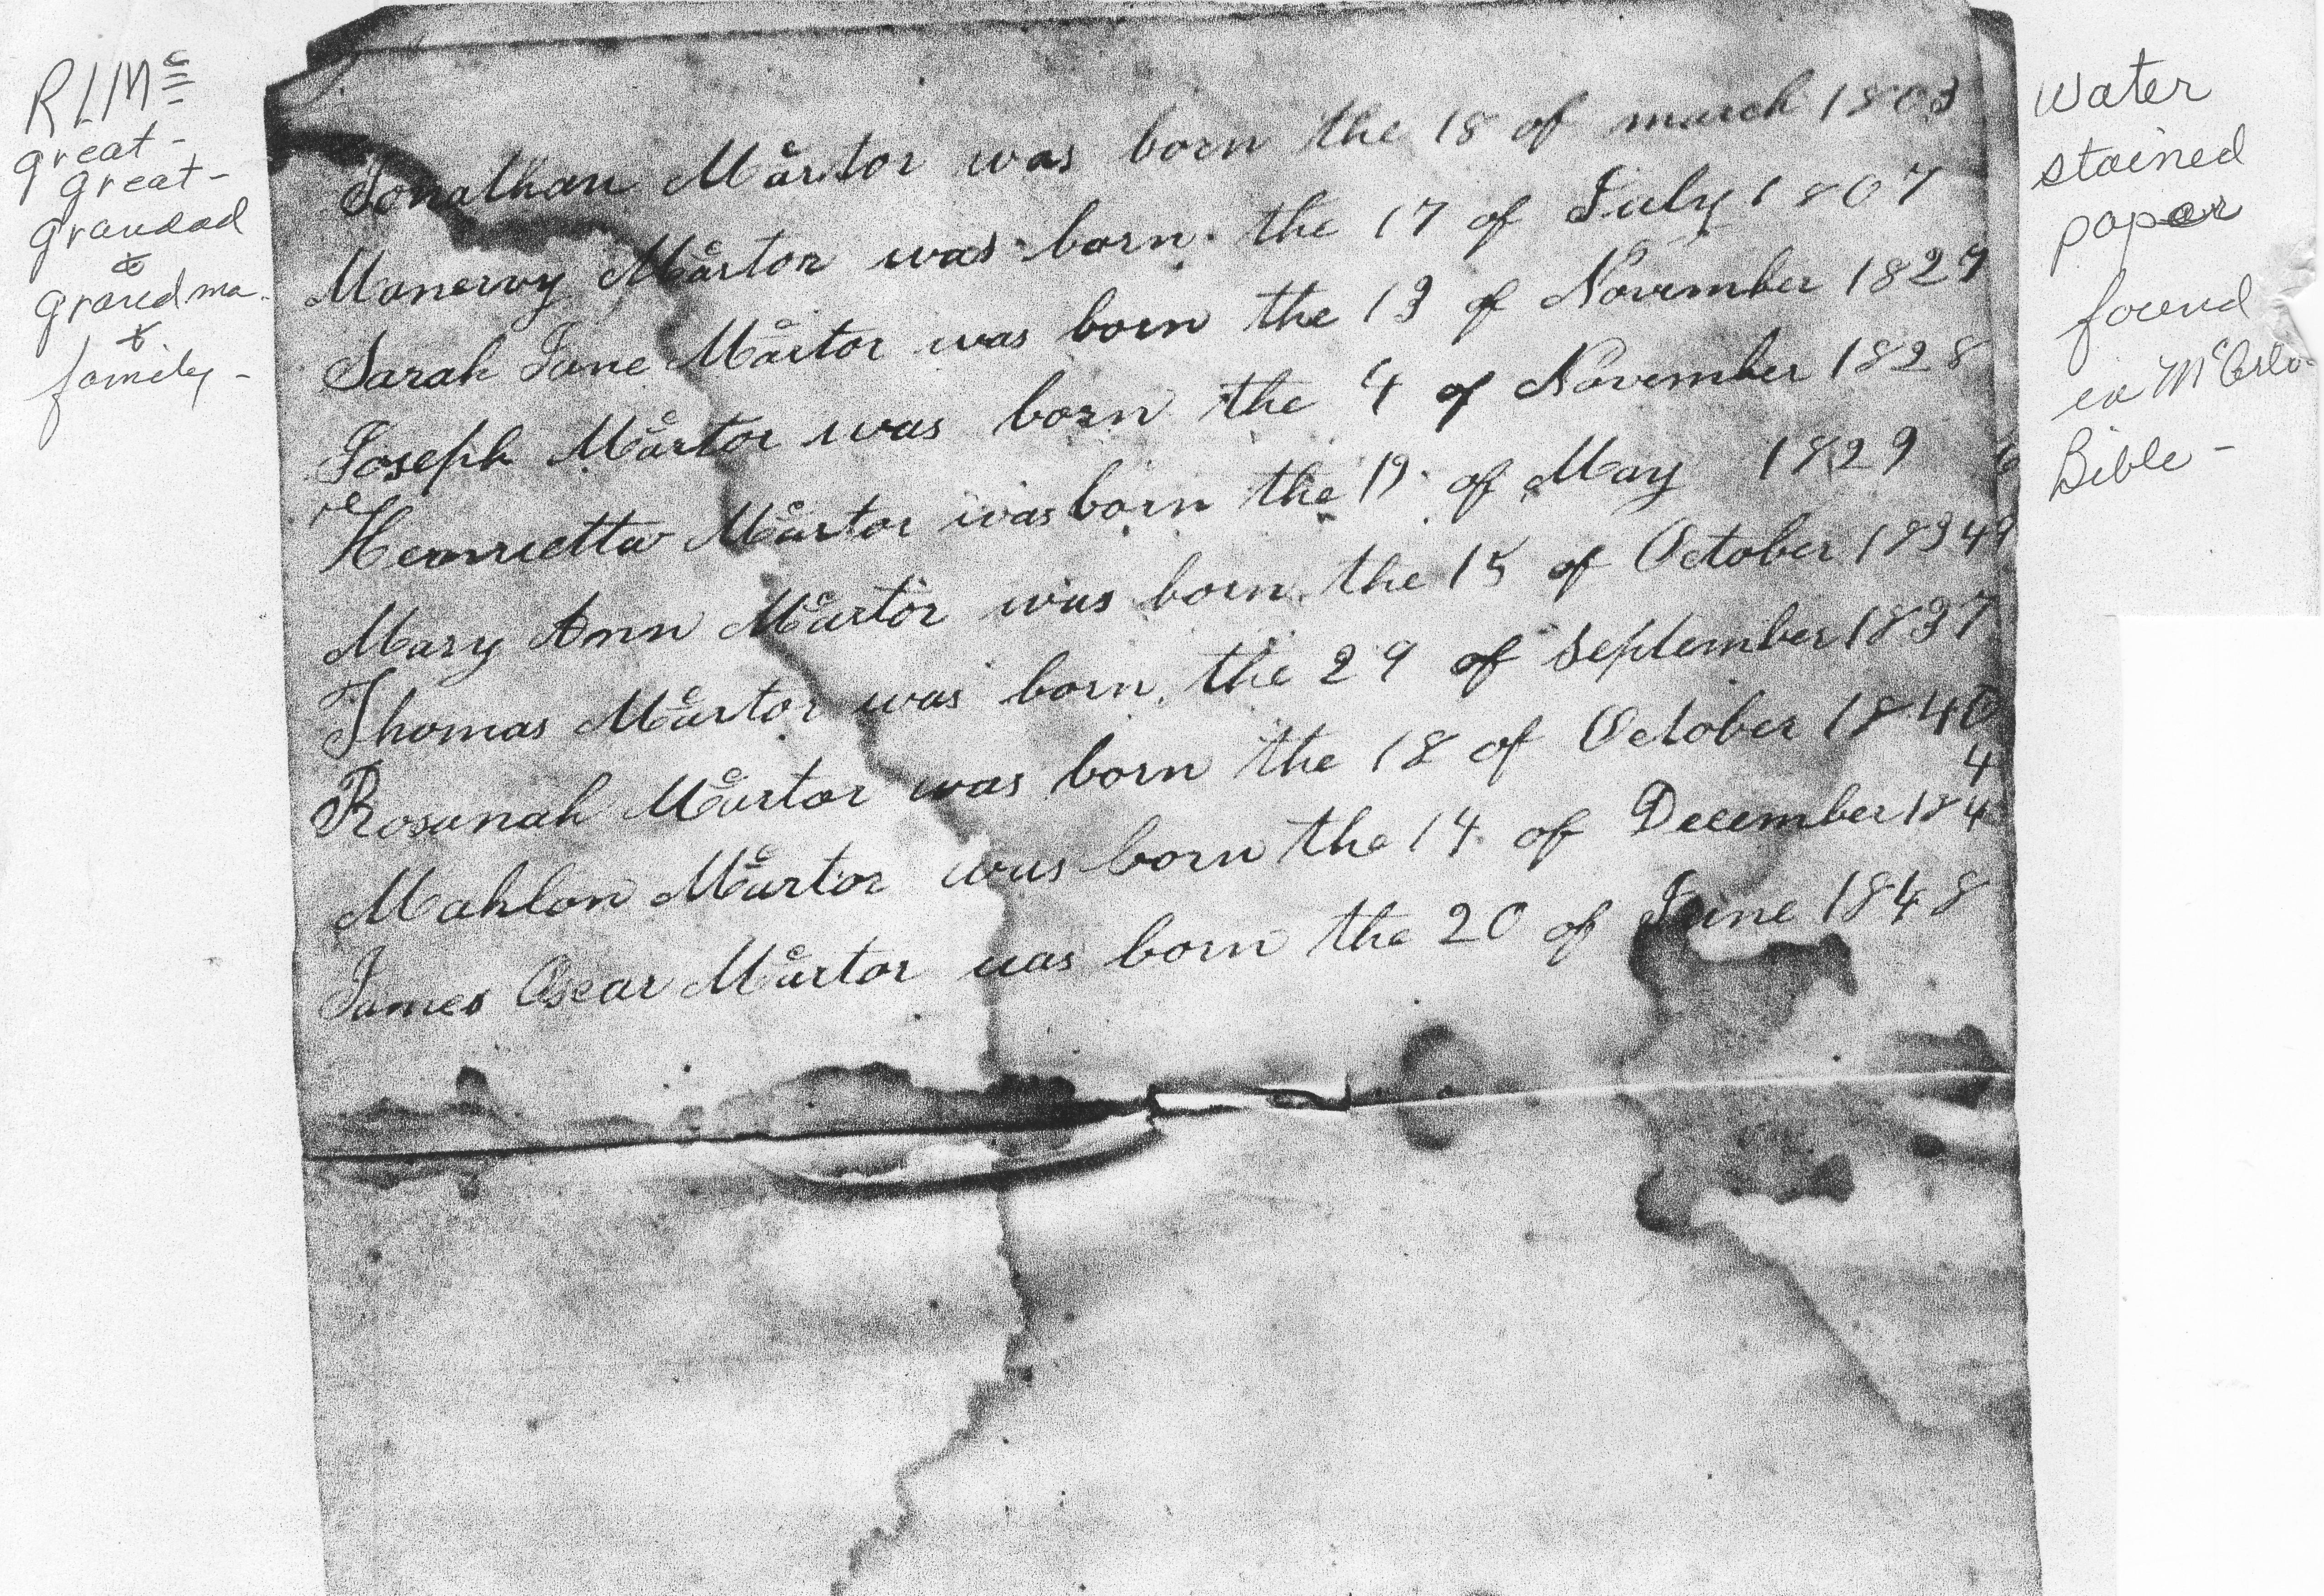 RLMc
great-
great-
grandad
&
grandma
&
family-
Jonathan McArtor was born the 18 of march 1803
Manervy McArtor was born the 17 of July 1807
Sarah Jane McArtor was born the 13 of November 1827
Joseph McArtor was born the 4 of November 1828
Henrietta McArtor was born the 19 of May 1829
Mary Ann McArtor was born the 15 of October 1834
Thomas McArtor was born the 29 of September 1837
Rosanah McArtor was born the 18 of October 1840
4
Mahlon McArtor was born the 14 of December 184
James Oscar McArtor was born the 20 of June 1848
Water
stained
paper
found
in
Bible-